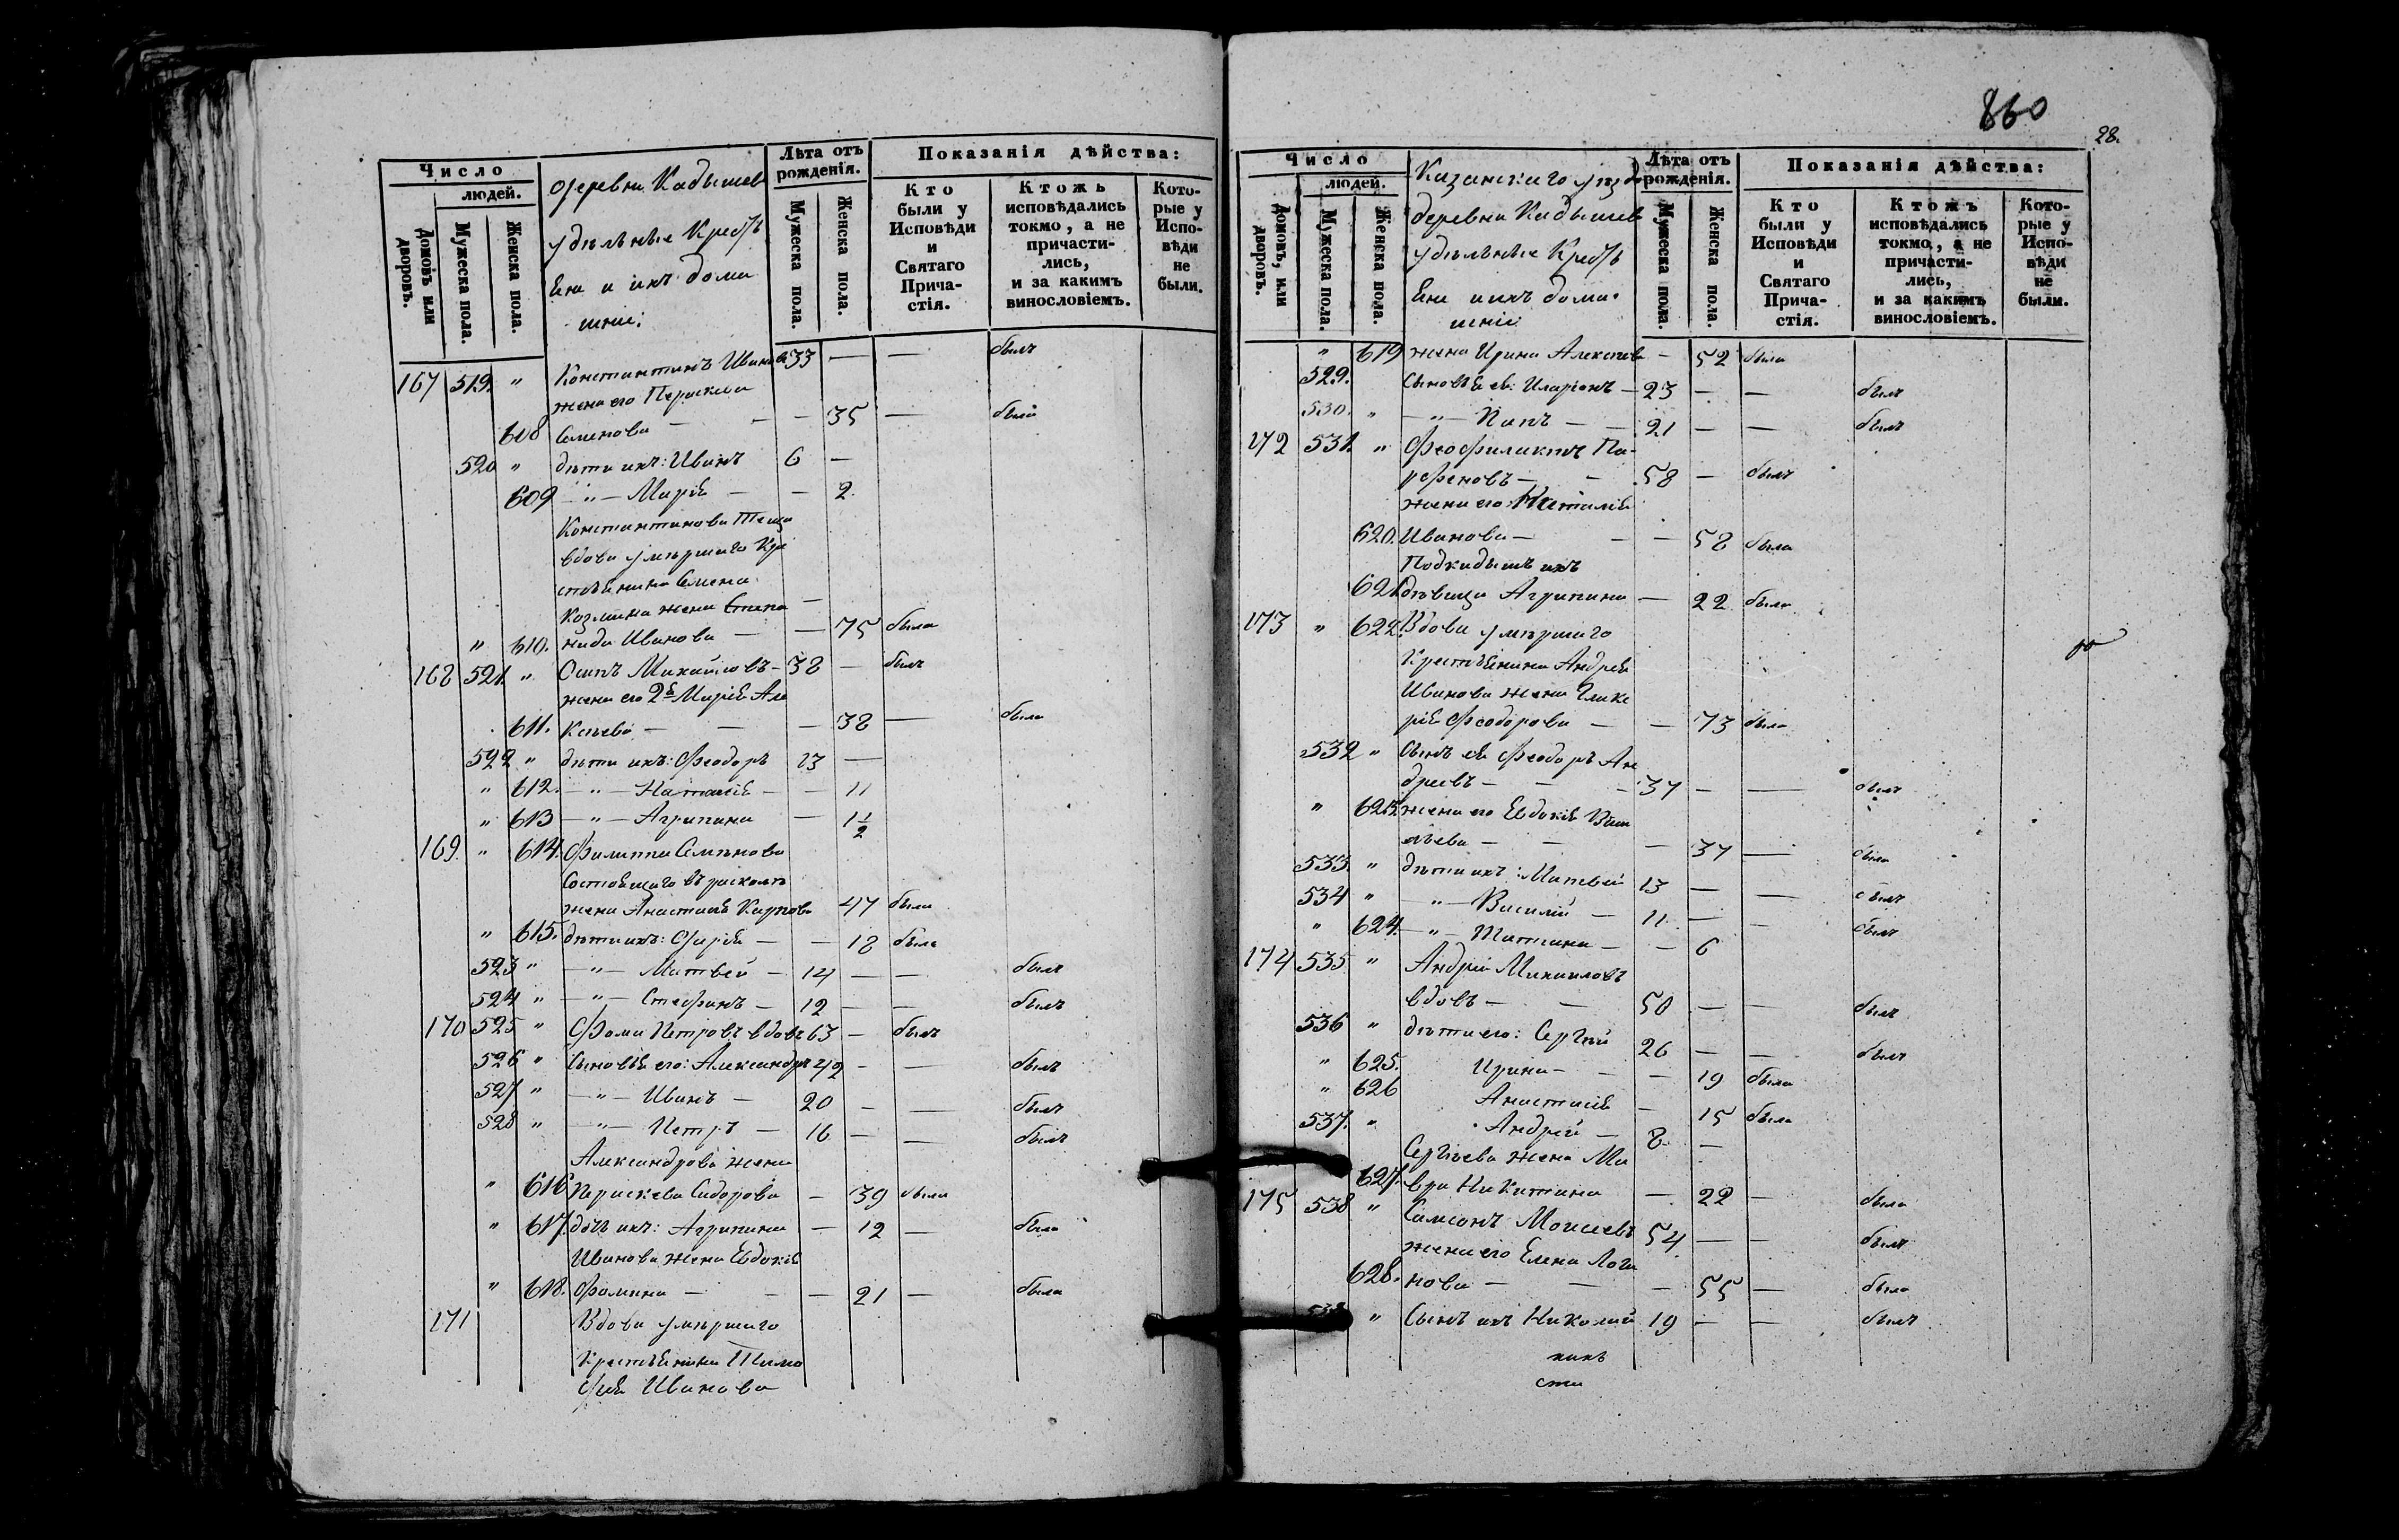 Число
людей.
Домовъ или дворовъ.
Мужеска пола.
Женска пола.
деревни Кадышев
удѣльные Крестья
не и ихъ дома
шніе:
Лѣта отъ рожденія.
Мужеска пола.
Женска пола.
Показанія дѣйства:
Кто были у Исповѣди и Святаго Причастія.
Ктожъ исповѣдались токмо, а не причастились, и за какимъ винословіемъ.
Которые у Исповѣди не были.
167 519. " Константинъ Иванов 33 — — былъ
жена его Параскева
608 Семенова — — 35 — была
520 " дѣти ихъ: Иванъ 6 —
609 — " — Марія — — 2.
Константинова теща
вдова умершаго Кре
стьянина Семена
Козмина жена Степа
" 610. нида Иванова — — 75 была
168 521. " Осипъ Михайловъ — 38 — былъ
жена его 2я Марія Але
611. ксѣева — — — 38 — была
522 " дѣти ихъ: Феодоръ 13 —
" 612. — " — Наталія — — 11
" 613 — " — Агрипина — 1 1/2
169. " 614. Филиппа Семенова
Состоящаго въ расколѣ
жена Анастасія Карпова 47 была
" 615. дѣти ихъ: Марія — — 18 была
523 " — " — Матвей — 14 — — былъ
524 " — " — Стефанъ — 12 — — былъ
170 525 " Фома Петровъ вдовъ 63 — былъ
526 " Сыновья его: Александръ 42 — — былъ
527 " — " — Иванъ — 20 — — былъ
528 " — " — Петръ — 16 — — былъ
Александрова жена
" 616 Параскева Сидорова — 39 была
" 617. дочь ихъ: Агрипина — 12 — была
Иванова жена Евдокія
" 618. Фомина — — — 21 — была
171 Вдова умершаго
Крестьянина Тимо
фея Иванова
860
28.
Число
людей.
Домовъ, или дворовъ.
Мужеска пола.
Женска пола.
Казанскаго уѣзд
деревни Кадышев
удѣльные Крестья
не и ихъ дома
шніе
Лѣта отъ рожденія.
Мужеска пола.
Женска пола.
Показанія дѣйства:
Кто были у Исповѣди и Святаго Причастія.
Ктожъ исповѣдались токмо, а не причастились, и за какимъ винословіемъ.
Которые у Исповѣди не были.
" 619 жена Ирина Алексѣева — 52 была
529. Сыновья ея: Иларіонъ — 23 — — былъ
530. " — " — Папъ — — 21 — — былъ
172 531. " Феофилактъ Па-
рфеновъ — — 58 — былъ
жена его Наталія
620. Иванова — — — 58 была
Подкидышъ ихъ
621 дѣвица Агрипина — 22 была
173 " 622. Вдова умершаго
Крестьянина Андрея
Иванова жена Глике
рія Феодорова — — 73 была
532 " Сынъ ея Феодоръ Ан
дреевъ — — 37 — — былъ
" 623. жена его Евдокія Васи
льева — — — 37 — была
533. " дѣти ихъ: Матвей 13 — — былъ
534 " — " — Василій — 11 — — былъ
" 624. — " — Татіана — — 6
174 535 " Андрей Михаиловъ
вдовъ — — 50 — — былъ
536 " дѣти его: Сергѣй 26 — — былъ
" 625. Ирина — — — 19 была
" 626 Анастасія — 15 была
537. " Андрей — 8. —
Сергѣева жена Ма
627. вра Никитина — 22 — была
175 538 " Самсонъ Моисеевъ 54 — — былъ
жена его Елена Логи
628. нова — — — 55 — была
" Сынъ ихъ Николай 19 — — былъ